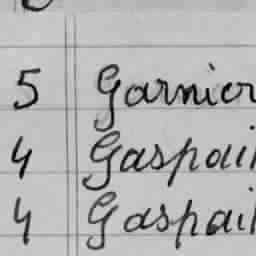 5 Garnier
4 Gaspail
4 Gaspail